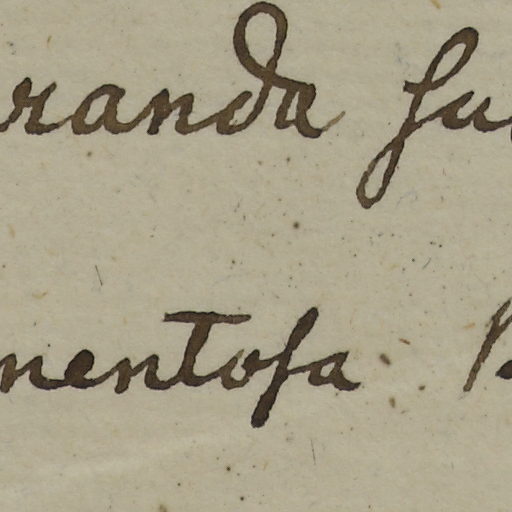 randa fu
mentosa B